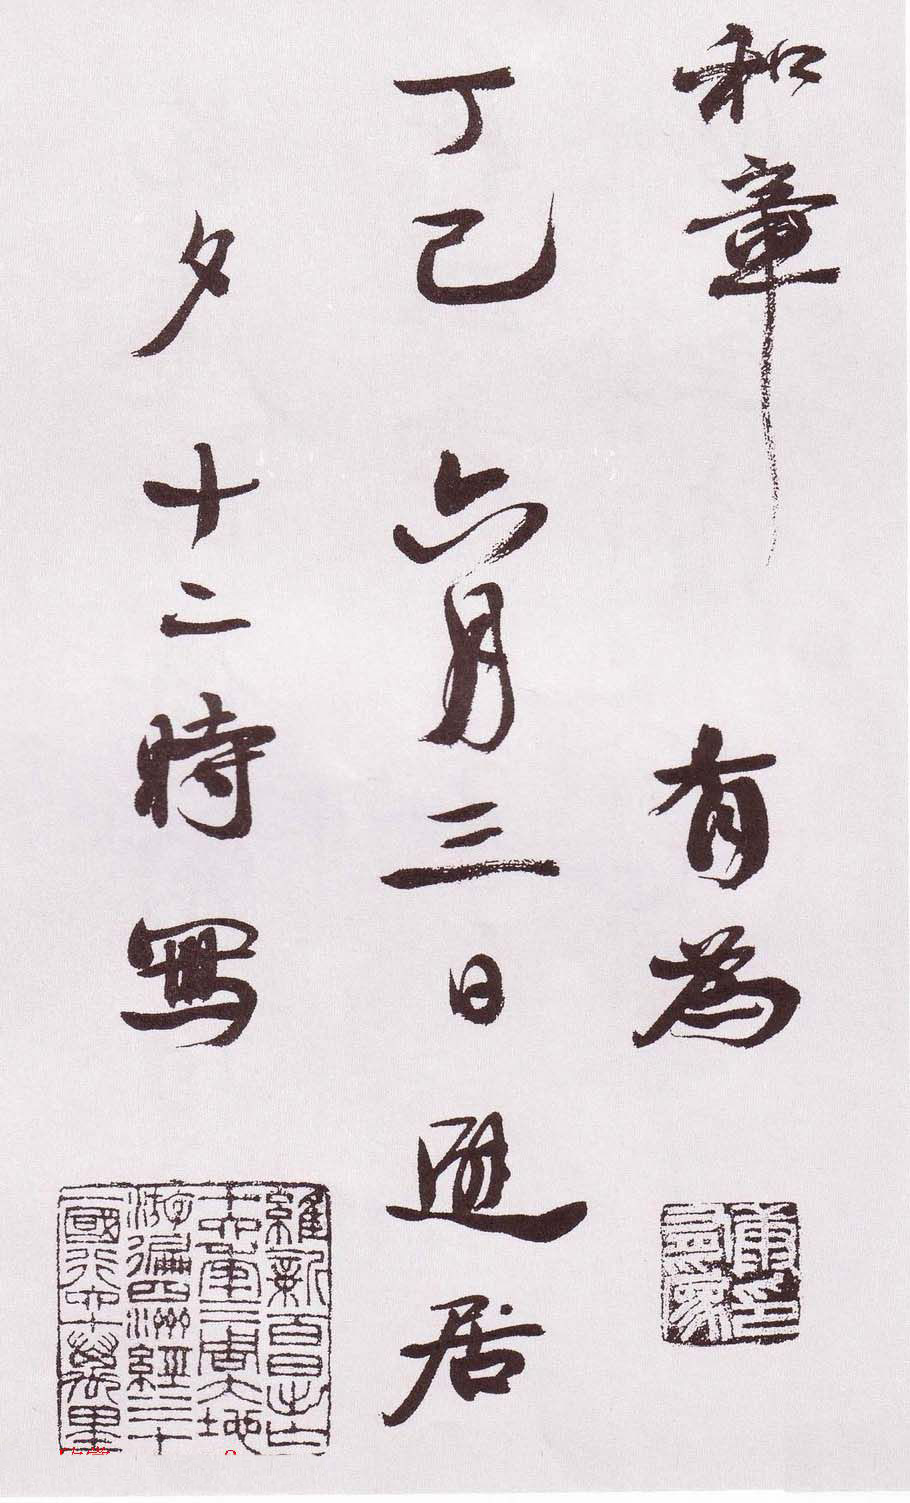 和章
有為
丁巳六月三日遯居
夕十二時寫
康有為印
維新百日出亡
十六年三周大地
游遍四洲經三十
一國行六十萬里